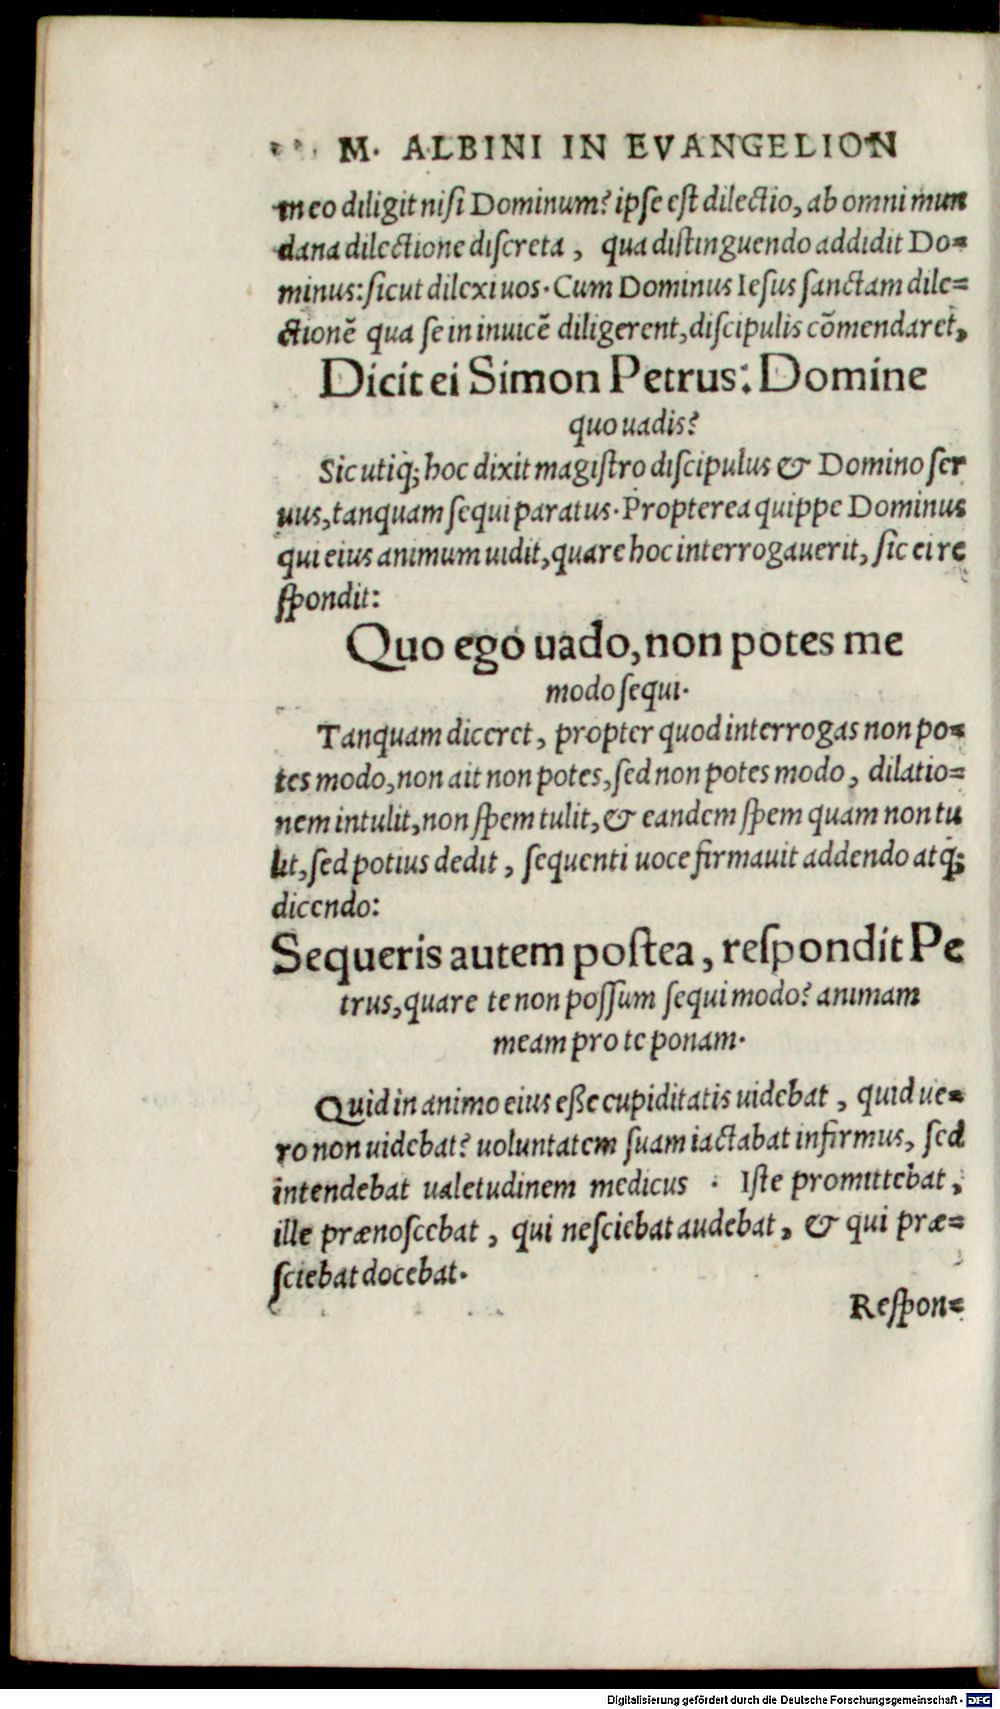 M. ALBINI IN EVANGELION
in eo diligit nisi Dominum? ipse est dilectio, ab omni mun
dana dilectione discreta, qua distinguendo addidit Do=
minus: sicut dilexi uos. Cum Dominus Iesus sanctam dile=
ctionē qua se in inuicē diligerent, discipulis cōmendaret,
Dicit ei Simon Petrus: Domine
quo uadis?
Sic utiq; hoc dixit magistro discipulus & Domino ser
uus, tanquam sequi paratus. Propterea quippe Dominus
qui eius animum uidit, quare hoc interrogauerit, sic ei re
spondit:
Quo ego uado, non potes me
modo sequi.
Tanquam diceret, propter quod interrogas non po=
tes modo, non ait non potes, sed non potes modo, dilatio=
nem intulit, non spem tulit, & eandem spem quam non tu
lit, sed potius dedit, sequenti uoce firmauit addendo atq;
dicendo:
Sequeris autem postea, respondit Pe
trus, quare te non possum sequi modo? animam
meam pro te ponam.
Quid in animo eius eße cupiditatis uidebat, quid ue=
ro non uidebat? uoluntatem suam iactabat infirmus, sed
intendebat ualetudinem medicus. Iste promittebat,
ille prænoscebat, qui nesciebat audebat, & qui præ=
sciebat docebat.
Respon=
Digitalisierung gefördert durch die Deutsche Forschungsgemeinschaft - DFG